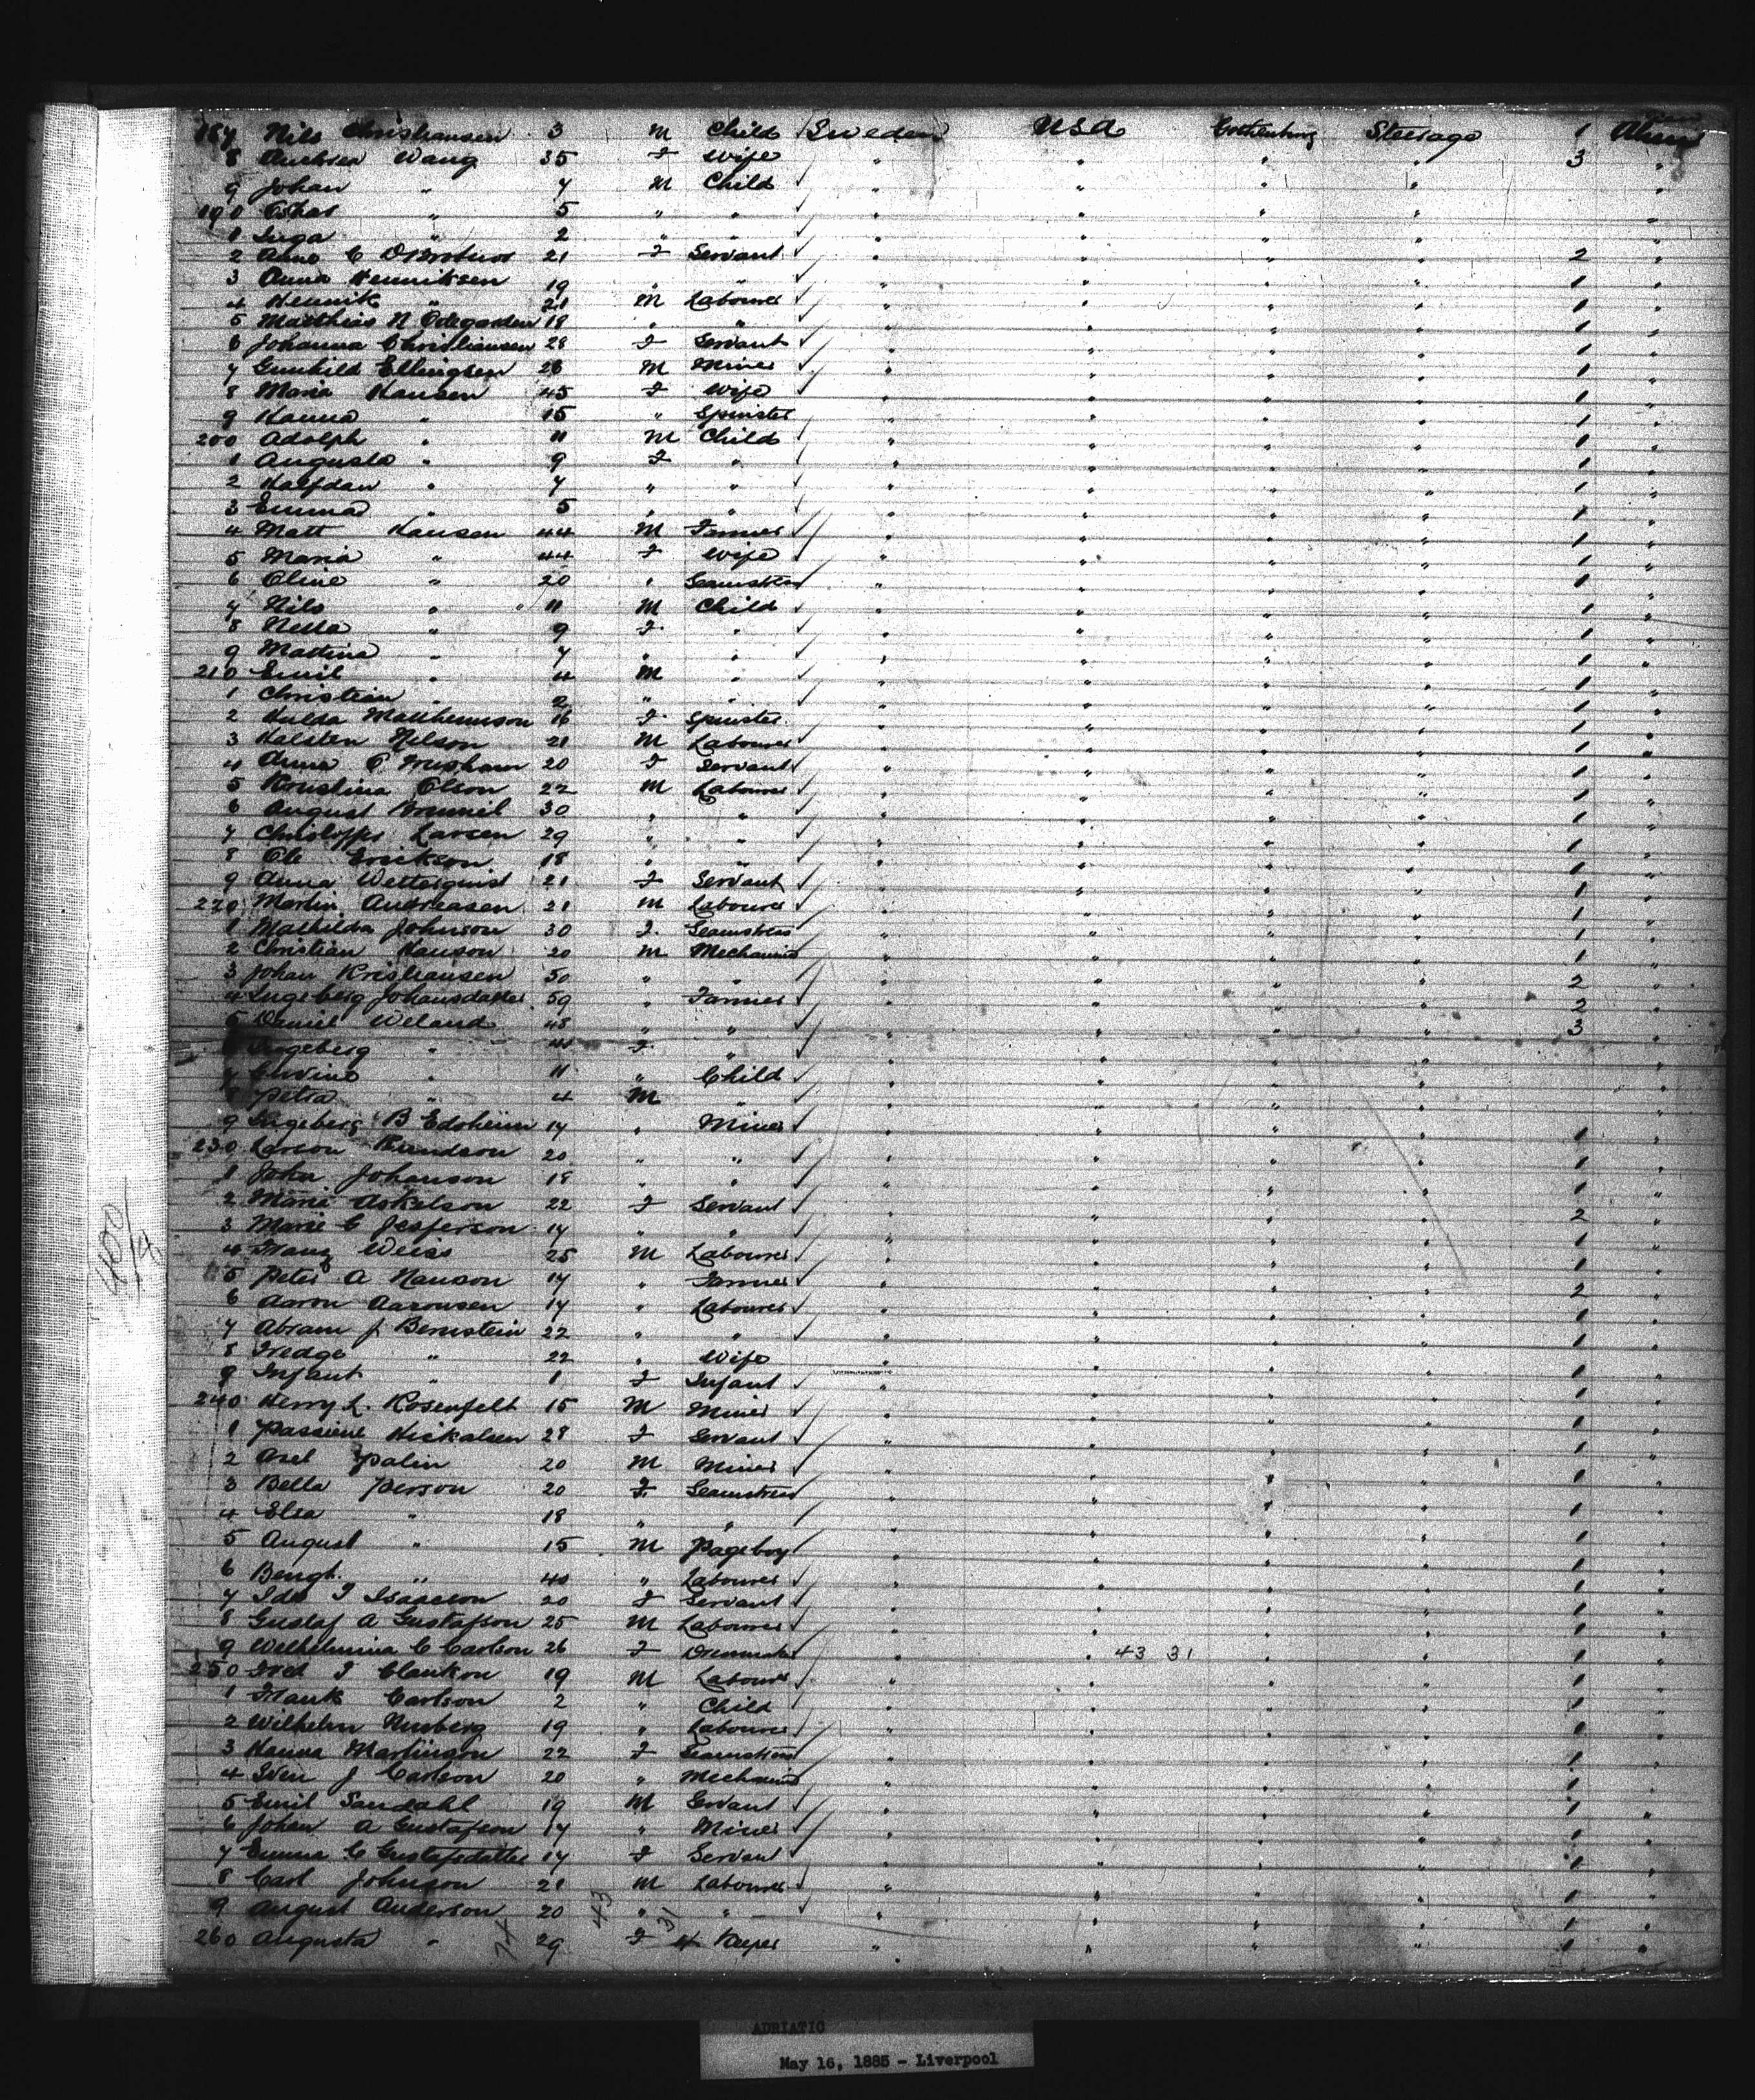 187 Nils Christiansen 3 M Child Sweden USA Gothenburg Steerage 1 Alien
8 Andrea Wang 35 F Wife " " " " 3 "
9 Johan " 7 M Child " " " " "
190 " 5 " " " " " " "
1 Inga " 2 " " " " " " "
2 Anna C 21 F Servant " " " " 2 "
3 Anna Henriksen 19 " " " " " " 1 "
4 Henrik " 21 M Labourer " " " " 1 "
5 Matthias N Odegarden 18 " " " " " " 1 "
6 Johanna Christiansen 28 F Servant " " " " 1 "
7 Gunhild Ellingsen 26 M Miner " " " " 1 "
8 Maria Hansen 45 F Wife " " " " 1 "
9 Hanna " 15 " Spinster " " " " 1 "
200 Adolph " 11 M Child " " " " 1 "
1 Augusta " 9 F " " " " " 1 "
2 Halfdan " 7 " " " " " " 1 "
3 Emma " 5 " " " " " " 1 "
4 Matt Hansen 44 M Farmer " " " " 1 "
5 Maria " 44 F Wife " " " " 1 "
6 Oline " 20 " Seamstress " " " " 1 "
7 Nils " 11 M Child " " " " 1 "
8 Nella " 9 F " " " " " 1 "
9 Mattina " 7 " " " " " " 1 "
210 Emil " 4 M " " " " " 1 "
1 Christian " 2 " " " " " " 1 "
2 Hulda 16 F Spinster " " " " 1 "
3 Halsten Nilson 21 M Labourer " " " " 1 "
4 Anna 20 F Servant " " " " 1 "
5 Kristina Olson 22 M Labourer " " " " 1 "
6 August 30 " " " " " " 1 "
7 Larsen 29 " " " " " " 1 "
8 Ole Erickson 18 " " " " " " 1 "
9 Anna Wetterquist 21 F Servant " " " " 1 "
220 Martin Andreasen 21 M Labourer " " " " 1 "
1 Mathilda Johnson 30 F Seamstress " " " " 1 "
2 Christian Hanson 20 M Mechanic " " " " 1 "
3 Johan Kristiansen 50 " " " " " " 2 "
4 Ingeberg Johansdatter 59 " Farmer " " " " 2 "
5 Daniel Weland 48 " " " " " " 3 "
Ingeberg " 41 F " " " " " "
" 11 " Child " " " " "
Petra " 4 M " " " " " "
9 Ingeberg B Edsheim 17 " Miner " " " " 1 "
230 Larson 20 " " " " " " 1 "
1 John Johanson 18 " " " " " " 1 "
2 Marie Askelson 22 F Servant " " " " 2 "
3 Marie C Jesperson 17 " " " " " " 1 "
4 Franz Weiss 25 M Labourer " " " " 1 "
5 Peter A Hanson 17 " Farmer " " " " 2 "
6 Aaron Aaronsen 17 " Labourer " " " " 1 "
7 Abram J Bernstein 22 " " " " " " 1 "
8 Fredge " 22 " Wife " " " " 1 "
9 Infant " 1 F Infant " " " " 1 "
240 Henry L. Rosenfelt 15 M Miner " " " " 1 "
1 Hickalsen 28 F Servant " " " " 1 "
2 Axel Palin 20 M Miner " " " " 1 "
3 Bella Person 20 F Seamstress " " " " 1 "
4 Elsa " 18 " " " " " " 1 "
5 August " 15 M Pageboy " " " " 1 "
6 Bengt. " 40 " Labourer " " " " 1 "
7 Ida I Isaacson 20 F Servant " " " " 1 "
8 Gustaf A Gustafson 25 M Labourer " " " " 1 "
9 Wilhelmina C Carlson 26 F Dressmaker " " 43 31 " " 1 "
250 19 M Labourer " " " " 1 "
1 Frank Carlson 2 " Child " " " " 1 "
2 Wilhelm 19 " Labourer " " " " 1 "
3 Hanna Martinson 22 F Seamstress " " " " 1 "
4 Sven J Carlson 20 " Mechanic " " " " 1 "
5 Emil Sandahl 19 M Servant " " " " 1 "
6 Johan A Gustafson 17 " Miner " " " " 1 "
7 Emma C Gustafsdatter 17 F Servant " " " " 1 "
8 Carl Johnson 21 M Labourer " " " " 1 "
9 August Anderson 20 " " " " " " 1 "
260 Augusta " 29 F H Keeper " " " " 1 "
74 43 31
ADRIATIC
May 16, 1885 - Liverpool